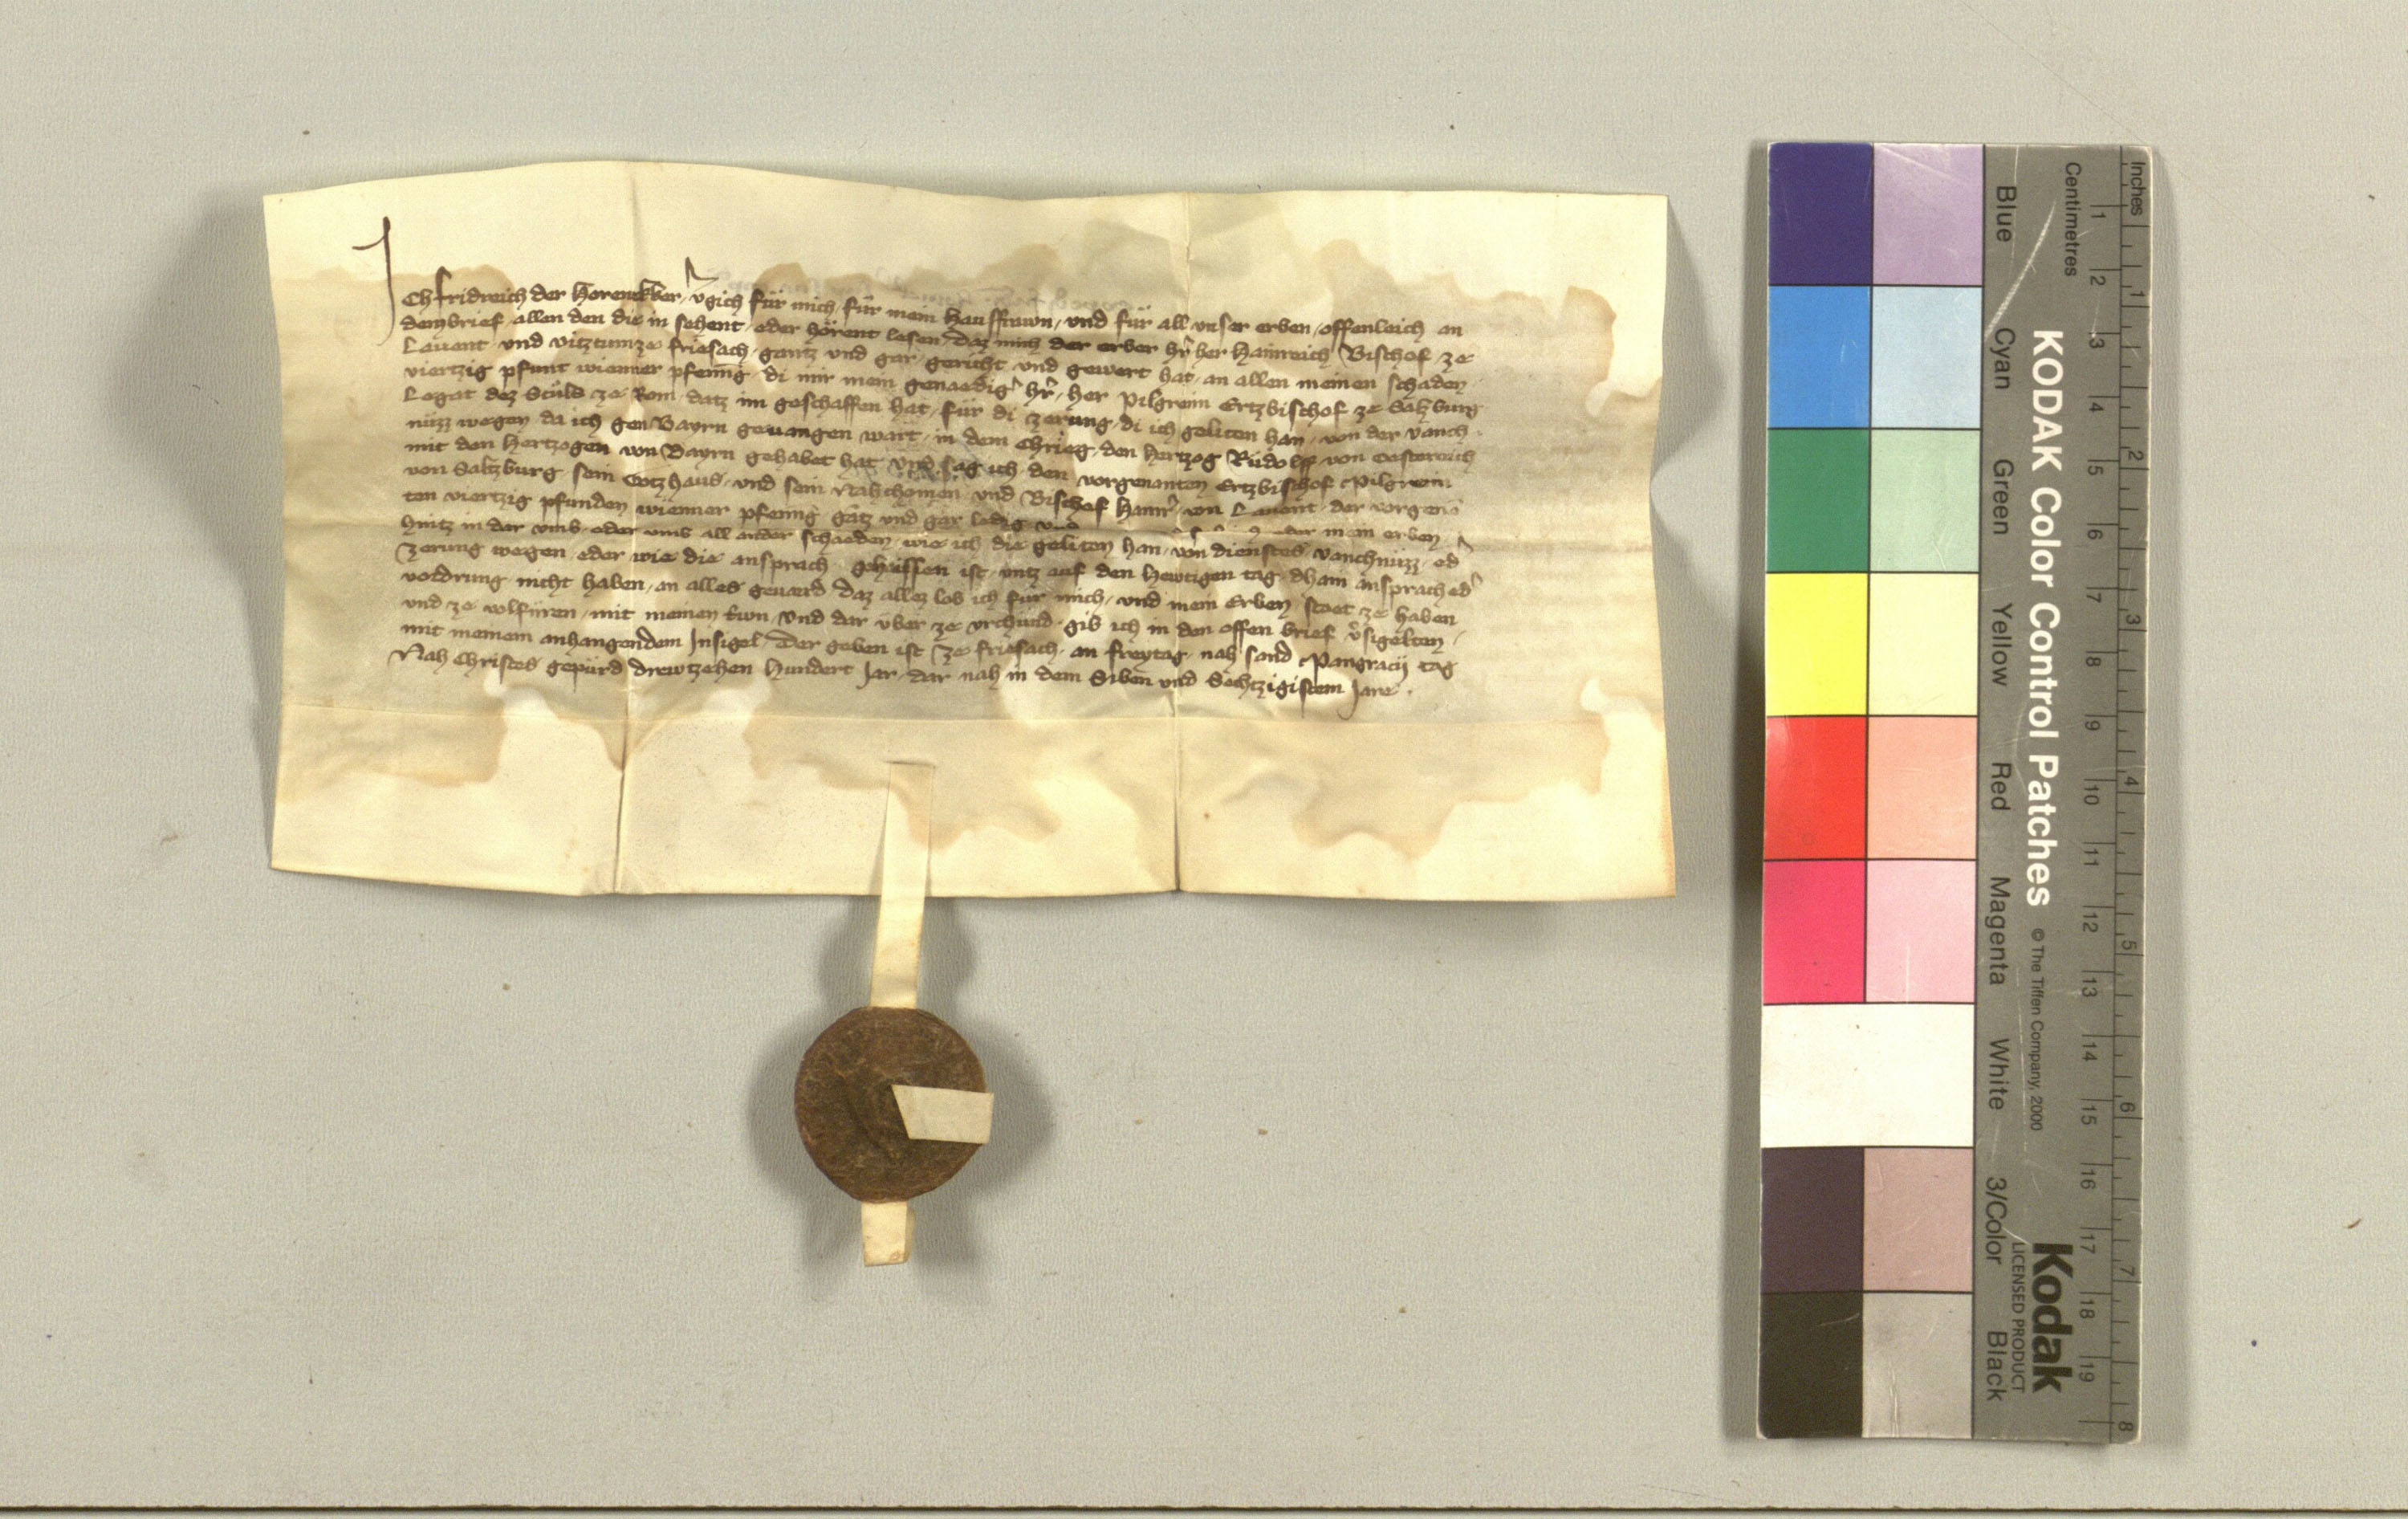 Ich fridreich der Horenekker v̾gich für mich für mein Hausfrawn und für all unser erben offenleich an
dem brief allen den die in sehent oder hörent lesen Daz mich der erber hr̾ her Hainreich Bischof ze
Lauent und vitztum ze friesach gantz und gar gericht und gewert hat an allen meinen schaden
viertzig pfunt wienner pfennig di mir mein genaedig̾ hr̾ her Pilgreim Ertzbischof ze Saltzburg
Legat dez Stůls ze Rom datz im geschaffen hat für di zerung di ich geliten han von der vanch
nüzz wegen da ich gen Bayrn geuangen wart in dem Chrieg den Hertzog Růdolff von Oesterreich
mit den Hertzogen von Bayrn gehabet hat Und sag ich den vorgenanten Ertzbischof Pilgreim
von Saltzburg sein Gotzhaus und sein Nahchomen und Bischof Hainr̾ von Lauent der vorgen̄
ten viertzig pfunden wienner pfennig gātz und gar ledig und
hintz in dar umb oder umb all ander schaeden wie ich die geliten han von dienstes vanchnüzz ed̾
zerung wegen oder wie die ansprach gehaissen ist untz auf den hewtigen tag dhain ansprach ed̾
vordrung nicht haben an alles geuaerd daz allez lob ich für mich und mein Erben staet ze haben
und ze volfüren mit meinen trwn Und dar über ze urchund gib ich in den offen brief v̾sigelten
mit meinem anhangendem Insigel Der geben ist ze friesach an freytag nah sand Pangracij tag
Nah Christes gepürd drewtzehen hundert Jar dar nah in dem Siben und Sechtzigistem Jare
KODAK Color Control Patches © The Tiffen Company, 2000 Kodak
LICENSED PRODUCT
Blue Cyan Green Yellow Red Magenta White 3/Color Black
Centimetres 1 2 3 4 5 6 7 8 9 10 11 12 13 14 15 16 17 18 19
Inches 1 2 3 4 5 6 7 8